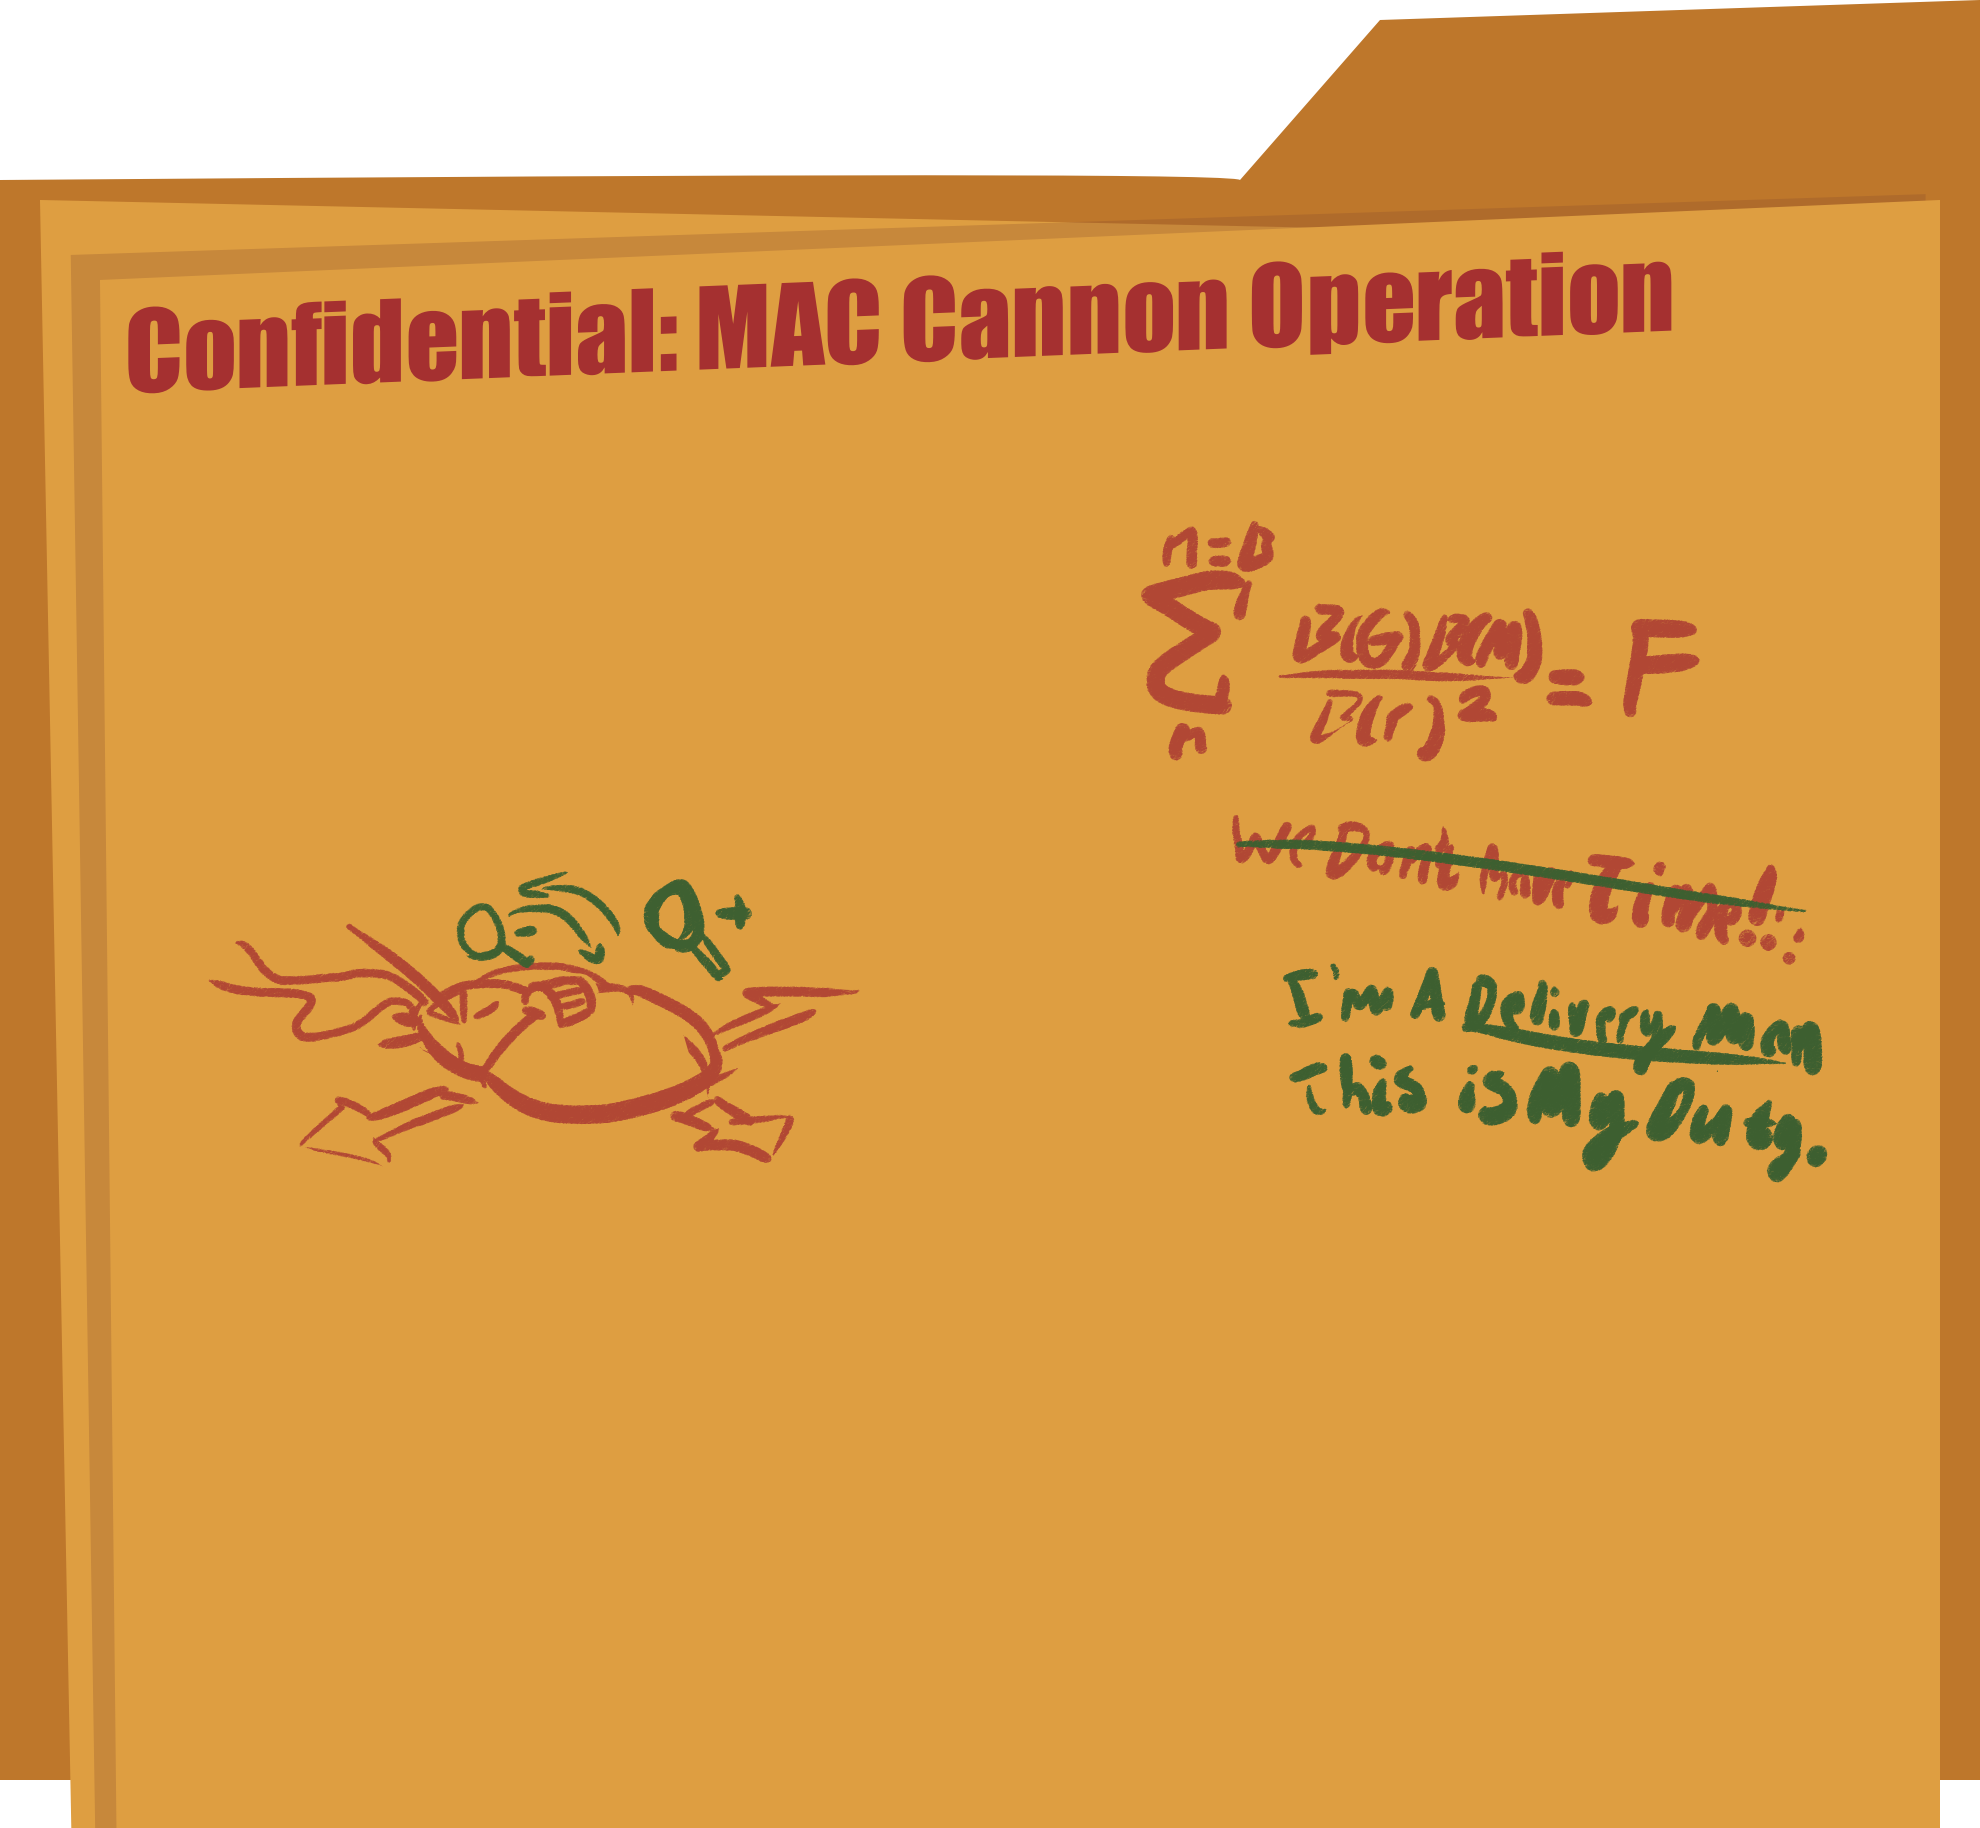 Confidential: MAC Cannon Operation
n=0
Σ
= F
n
We Dont Have Time!!!
Q- Q+
I'm A Delivery Man
This is My Duty.